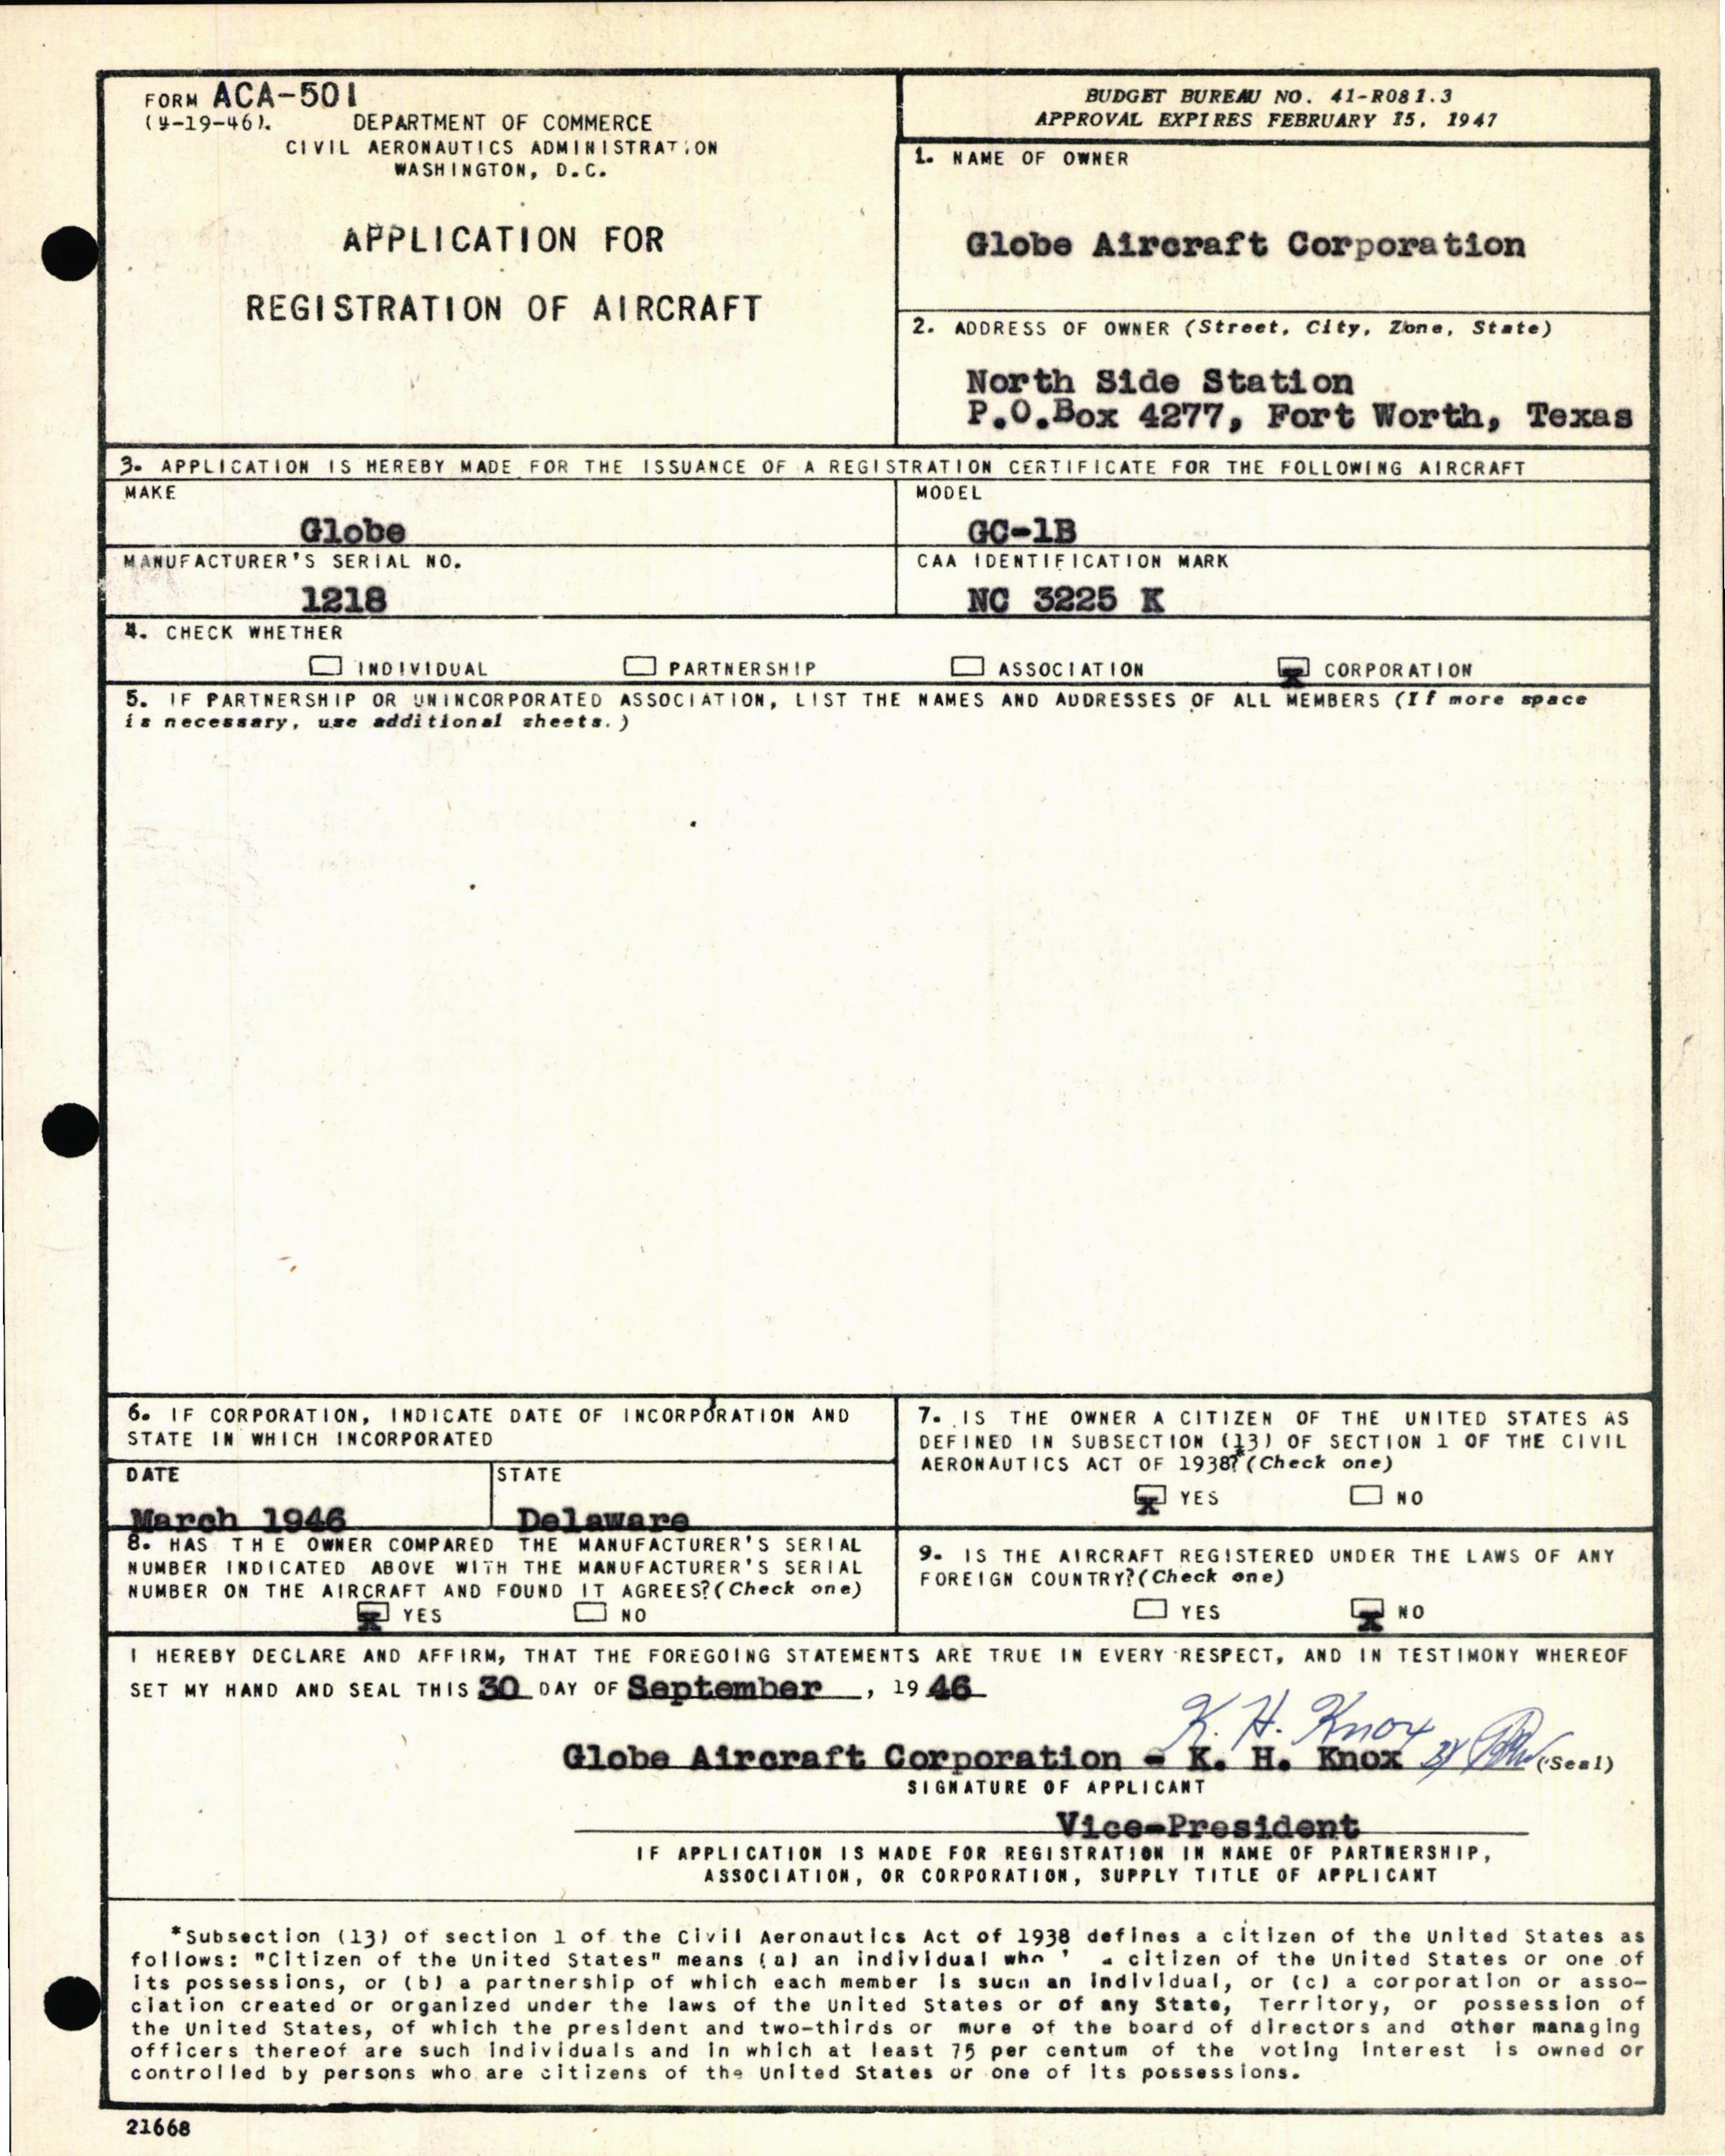 FORM ACA-501
(4-19-46).
DEPARTMENT OF COMMERCE
CIVIL AERONAUTICS ADMINISTRATION
WASHINGTON, D.C.
APPLICATION FOR
REGISTRATION OF AIRCRAFT
BUDGET BUREAU NO. 41-R081.3
APPROVAL EXPIRES FEBRUARY 15, 1947
1. NAME OF OWNER
Globe Aircraft Corporation
2. ADDRESS OF OWNER (Street, City, Zone, State)
North Side Station
P.O.Box 4277, Fort Worth, Texas
3. APPLICATION IS HEREBY MADE FOR THE ISSUANCE OF A REGISTRATION CERTIFICATE FOR THE FOLLOWING AIRCRAFT
MAKE
Globe
MODEL
GC-1B
MANUFACTURER'S SERIAL NO.
1218
CAA IDENTIFICATION MARK
NC 3225 K
4. CHECK WHETHER
INDIVIDUAL PARTNERSHIP ASSOCIATION X CORPORATION
5. IF PARTNERSHIP OR UNINCORPORATED ASSOCIATION, LIST THE NAMES AND ADDRESSES OF ALL MEMBERS (If more space
is necessary, use additional sheets.)
6. IF CORPORATION, INDICATE DATE OF INCORPORATION AND
STATE IN WHICH INCORPORATED
DATE
March 1946
STATE
Delaware
7. IS THE OWNER A CITIZEN OF THE UNITED STATES AS
DEFINED IN SUBSECTION (13) OF SECTION 1 OF THE CIVIL
AERONAUTICS ACT OF 1938?* (Check one)
X YES NO
8. HAS THE OWNER COMPARED THE MANUFACTURER'S SERIAL
NUMBER INDICATED ABOVE WITH THE MANUFACTURER'S SERIAL
NUMBER ON THE AIRCRAFT AND FOUND IT AGREES? (Check one)
X YES NO
9. IS THE AIRCRAFT REGISTERED UNDER THE LAWS OF ANY
FOREIGN COUNTRY? (Check one)
YES X NO
I HEREBY DECLARE AND AFFIRM, THAT THE FOREGOING STATEMENTS ARE TRUE IN EVERY RESPECT, AND IN TESTIMONY WHEREOF
SET MY HAND AND SEAL THIS 30 DAY OF September, 19 46
K. H. Knox
Globe Aircraft Corporation - K. H. Knox (Seal)
SIGNATURE OF APPLICANT
Vice-President
IF APPLICATION IS MADE FOR REGISTRATION IN NAME OF PARTNERSHIP,
ASSOCIATION, OR CORPORATION, SUPPLY TITLE OF APPLICANT
*Subsection (13) of section 1 of the Civil Aeronautics Act of 1938 defines a citizen of the United States as
follows: "Citizen of the United States" means (a) an individual who a citizen of the United States or one of
its possessions, or (b) a partnership of which each member is such an individual, or (c) a corporation or asso-
ciation created or organized under the laws of the United States or of any State, Territory, or possession of
the United States, of which the president and two-thirds or more of the board of directors and other managing
officers thereof are such individuals and in which at least 75 per centum of the voting interest is owned or
controlled by persons who are citizens of the United States or one of its possessions.
21668